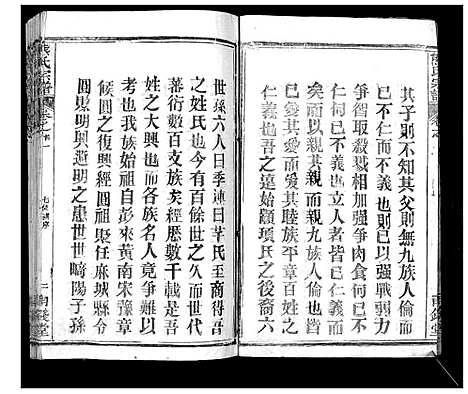 其子則不知其父則無九族人倫
也不仁而不義也以強而戰弱
爭智取殺戮相加強爭肉食何
仁何已不義也立人者皆仁義而
矣而以親其親而親九族人倫也
仁愛而至愛其愛睦鄰而
仁義也吾之遠始顓頊氏之裔六
世孫六人曰季連曰芈氏至商得吾
之姓氏也今有百餘世之久而世代
蕃衍數百支族矣經歷數千載是吾
姓之大興也而各族名人竟爭難以
述全我族始祖自彭來黃南宋豫章
候圓之圓賜任麻城縣令
圓賜明興遊明之患世世疇陽子孫
熊氏宗譜
熊氏宗譜
南錢堂